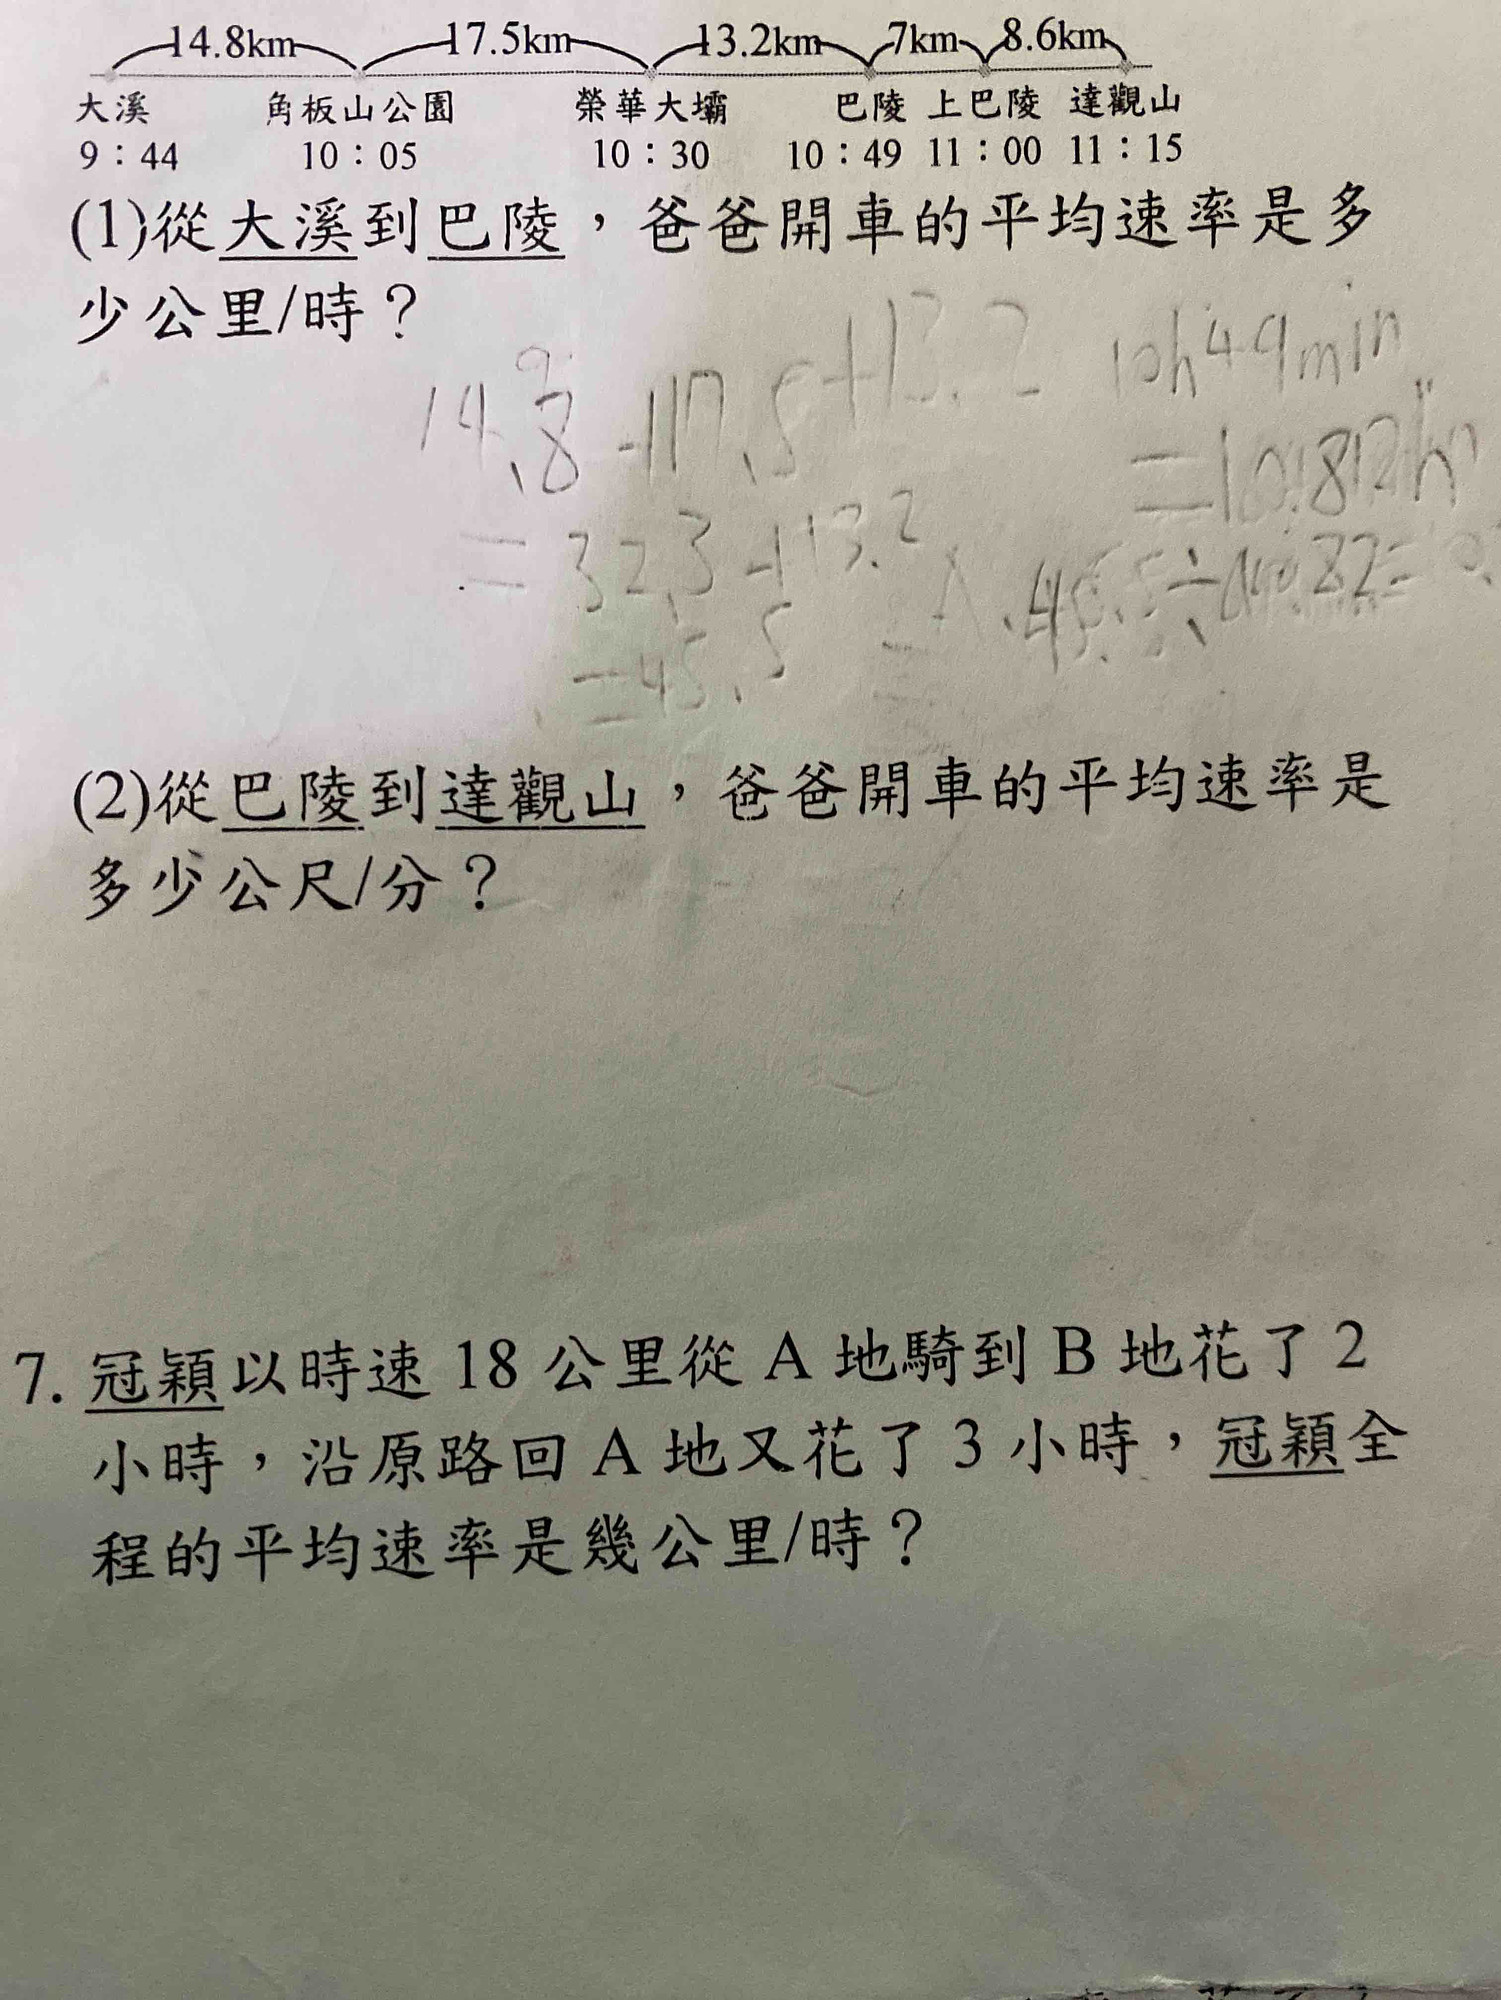 14.8km 17.5km 13.2km 7km 8.6km
大溪 角板山公園 榮華大壩 巴陵 上巴陵 達觀山
9：44 10：05 10：30 10：49 11：00 11：15
(1)從大溪到巴陵，爸爸開車的平均速率是多
少公里/時？
14.8+17.5+13.2 10h49min
=32.3+13.2
=45.5
(2)從巴陵到達觀山，爸爸開車的平均速率是
多少公尺/分？
7. 冠穎以時速 18 公里從 A 地騎到 B 地花了 2
小時，沿原路回 A 地又花了 3 小時，冠穎全
程的平均速率是幾公里/時？